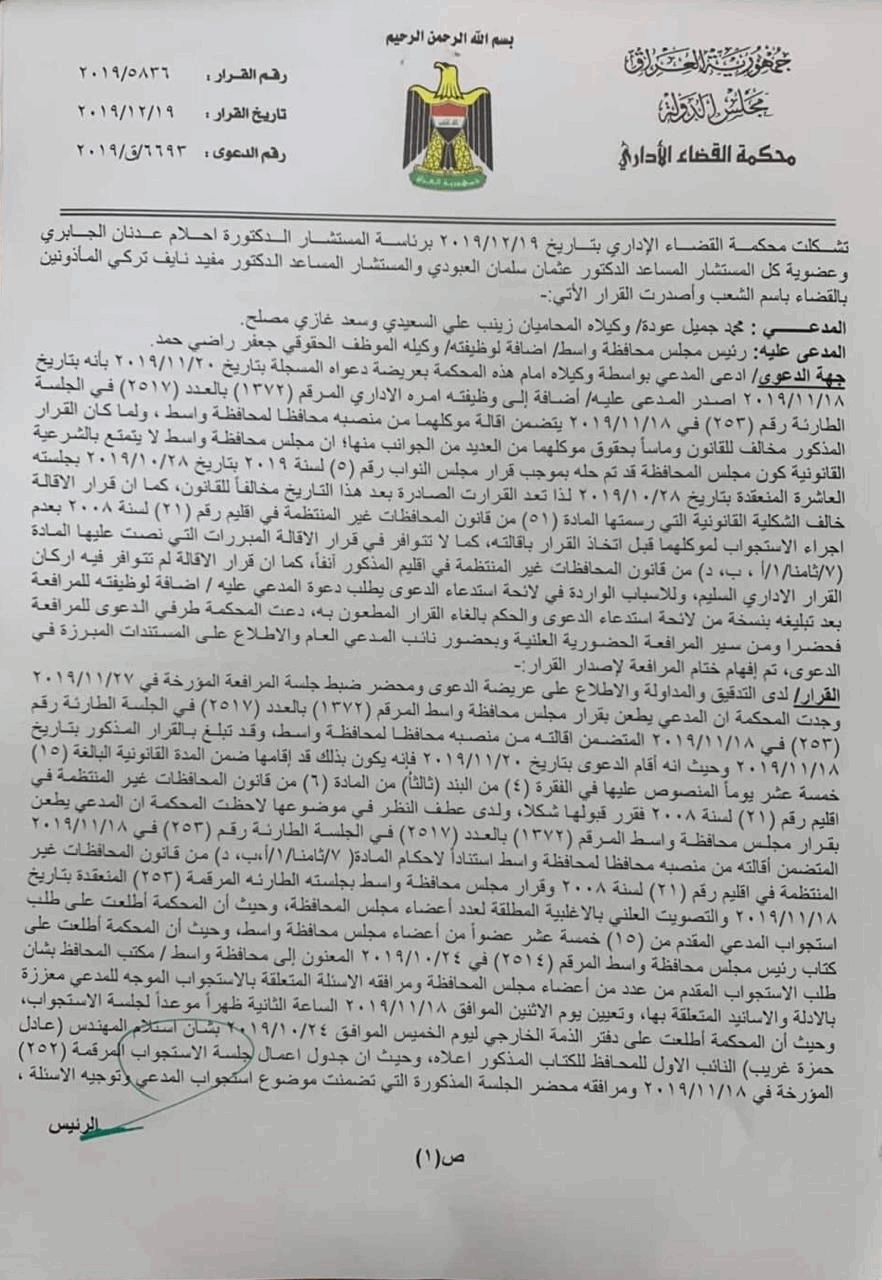 بسم الله الرحمن الرحيم
جمهورية العراق
مجلس الدولة
محكمة القضاء الأداري
رقم القرار : ٢٠١٩/٥٨٣٦
تاريخ القرار : ٢٠١٩/١٢/١٩
رقم الدعوى : ٦٦٩٣/ق/٢٠١٩
جمهورية العراق
تشكلت محكمة القضاء الإداري بتاريخ ٢٠١٩/١٢/١٩ برئاسة المستشار الدكتورة احلام عدنان الجابري
وعضوية كل المستشار المساعد الدكتور عثمان سلمان العبودي والمستشار المساعد الدكتور مفيد نايف تركي المأذونين
بالقضاء باسم الشعب وأصدرت القرار الأتي:-
المدعــــي : محمد جميل عودة/ وكيلاه المحاميان زينب علي السعيدي وسعد غازي مصلح.
المدعى عليه: رئيس مجلس محافظة واسط/ اضافة لوظيفته/ وكيله الموظف الحقوقي جعفر راضي حمد.
جهة الدعوى/ ادعى المدعي بواسطة وكيلاه امام هذه المحكمة بعريضة دعواه المسجلة بتاريخ ٢٠١٩/١١/٢٠ بأنه بتاريخ
٢٠١٩/١١/١٨ اصدر المدعى عليه/ أضافة إلى وظيفته امره الاداري المرقم (١٣٧٢) بالعدد (٢٥١٧) في الجلسة
الطارئة رقم (٢٥٣) في ٢٠١٩/١١/١٨ يتضمن اقالة موكلهما من منصبه محافظا لمحافظة واسط ، ولما كان القرار
المذكور مخالف للقانون وماساً بحقوق موكلهما من العديد من الجوانب منها؛ ان مجلس محافظة واسط لا يتمتع بالشرعية
القانونية كون مجلس المحافظة قد تم حله بموجب قرار مجلس النواب رقم (٥) لسنة ٢٠١٩ بتاريخ ٢٠١٩/١٠/٢٨ بجلسته
العاشرة المنعقدة بتاريخ ٢٠١٩/١٠/٢٨ لذا تعد القرارت الصادرة بعد هذا التاريخ مخالفاً للقانون، كما ان قرار الاقالة
خالف الشكلية القانونية التي رسمتها المادة (٥١) من قانون المحافظات غير المنتظمة في اقليم رقم (٢١) لسنة ٢٠٠٨ بعدم
اجراء الاستجواب لموكلهما قبل اتخاذ القرار باقالته، كما لا تتوافر في قرار الاقالة المبررات التي نصت عليها المادة
(٧/ثامنا/١/أ ، ب، د) من قانون المحافظات غير المنتظمة في اقليم المذكور أنفاً، كما ان قرار الاقالة لم تتوافر فيه اركان
القرار الاداري السليم، وللاسباب الواردة في لائحة استدعاء الدعوى يطلب دعوة المدعي عليه / اضافة لوظيفته للمرافعة
بعد تبليغه بنسخة من لائحة استدعاء الدعوى والحكم بالغاء القرار المطعون به، دعت المحكمة طرفي الدعوى للمرافعة
فحضرا ومن سير المرافعة الحضورية العلنية وبحضور نائب المدعي العام والاطلاع على المستندات المبرزة في
الدعوى، تم إفهام ختام المرافعة لإصدار القرار:-
القرار/ لدى التدقيق والمداولة والاطلاع على عريضة الدعوى ومحضر ضبط جلسة المرافعة المؤرخة في ٢٠١٩/١١/٢٧
وجدت المحكمة ان المدعي يطعن بقرار مجلس محافظة واسط المرقم (١٣٧٢) بالعدد (٢٥١٧) في الجلسة الطارئة رقم
(٢٥٣) في ٢٠١٩/١١/١٨ المتضمن اقالته من منصبه محافظا لمحافظة واسط، وقد تبلغ بالقرار المذكور بتاريخ
٢٠١٩/١١/١٨ وحيث انه أقام الدعوى بتاريخ ٢٠١٩/١١/٢٠ فإنه يكون بذلك قد إقامها ضمن المدة القانونية البالغة (١٥)
خمسة عشر يوماً المنصوص عليها في الفقرة (٤) من البند (ثالثاً) من المادة (٦) من قانون المحافظات غير المنتظمة في
اقليم رقم (٢١) لسنة ٢٠٠٨ فقرر قبولها شكلا، ولدى عطف النظر في موضوعها لاحظت المحكمة ان المدعي يطعن
بقرار مجلس محافظة واسط المرقم (١٣٧٢) بالعدد (٢٥١٧) في الجلسة الطارئة رقم (٢٥٣) في ٢٠١٩/١١/١٨
المتضمن أقالته من منصبه محافظا لمحافظة واسط استناداً لاحكام المادة( ٧/ثامنا/١/أ،ب، د) من قانون المحافظات غير
المنتظمة في اقليم رقم (٢١) لسنة ٢٠٠٨ وقرار مجلس محافظة واسط بجلسته الطارئه المرقمة (٢٥٣) المنعقدة بتاريخ
٢٠١٩/١١/١٨ والتصويت العلني بالاغلبية المطلقة لعدد أعضاء مجلس المحافظة، وحيث أن المحكمة أطلعت على طلب
استجواب المدعي المقدم من (١٥) خمسة عشر عضواً من أعضاء مجلس محافظة واسط، وحيث أن المحكمة أطلعت على
كتاب رئيس مجلس محافظة واسط المرقم (٢٥١٤) في ٢٠١٩/١٠/٢٤ المعنون إلى محافظة واسط / مكتب المحافظ بشان
طلب الاستجواب المقدم من عدد من أعضاء مجلس المحافظة ومرافقه الاسئلة المتعلقة بالاستجواب الموجه للمدعي معززة
بالادلة والاسانيد المتعلقة بها، وتعيين يوم الاثنين الموافق ٢٠١٩/١١/١٨ الساعة الثانية ظهراً موعداً لجلسة الاستجواب،
وحيث أن المحكمة أطلعت على دفتر الذمة الخارجي ليوم الخميس الموافق ٢٠١٩/١٠/٢٤ بشان استلام المهندس (عادل
حمزة غريب) النائب الاول للمحافظ للكتاب المذكور اعلاه، وحيث ان جدول اعمال جلسة الاستجواب المرقمة (٢٥٢)
المؤرخة في ٢٠١٩/١١/١٨ ومرافقه محضر الجلسة المذكورة التي تضمنت موضوع استجواب المدعي وتوجيه الاسئلة ،
الرئيس
ص(١)